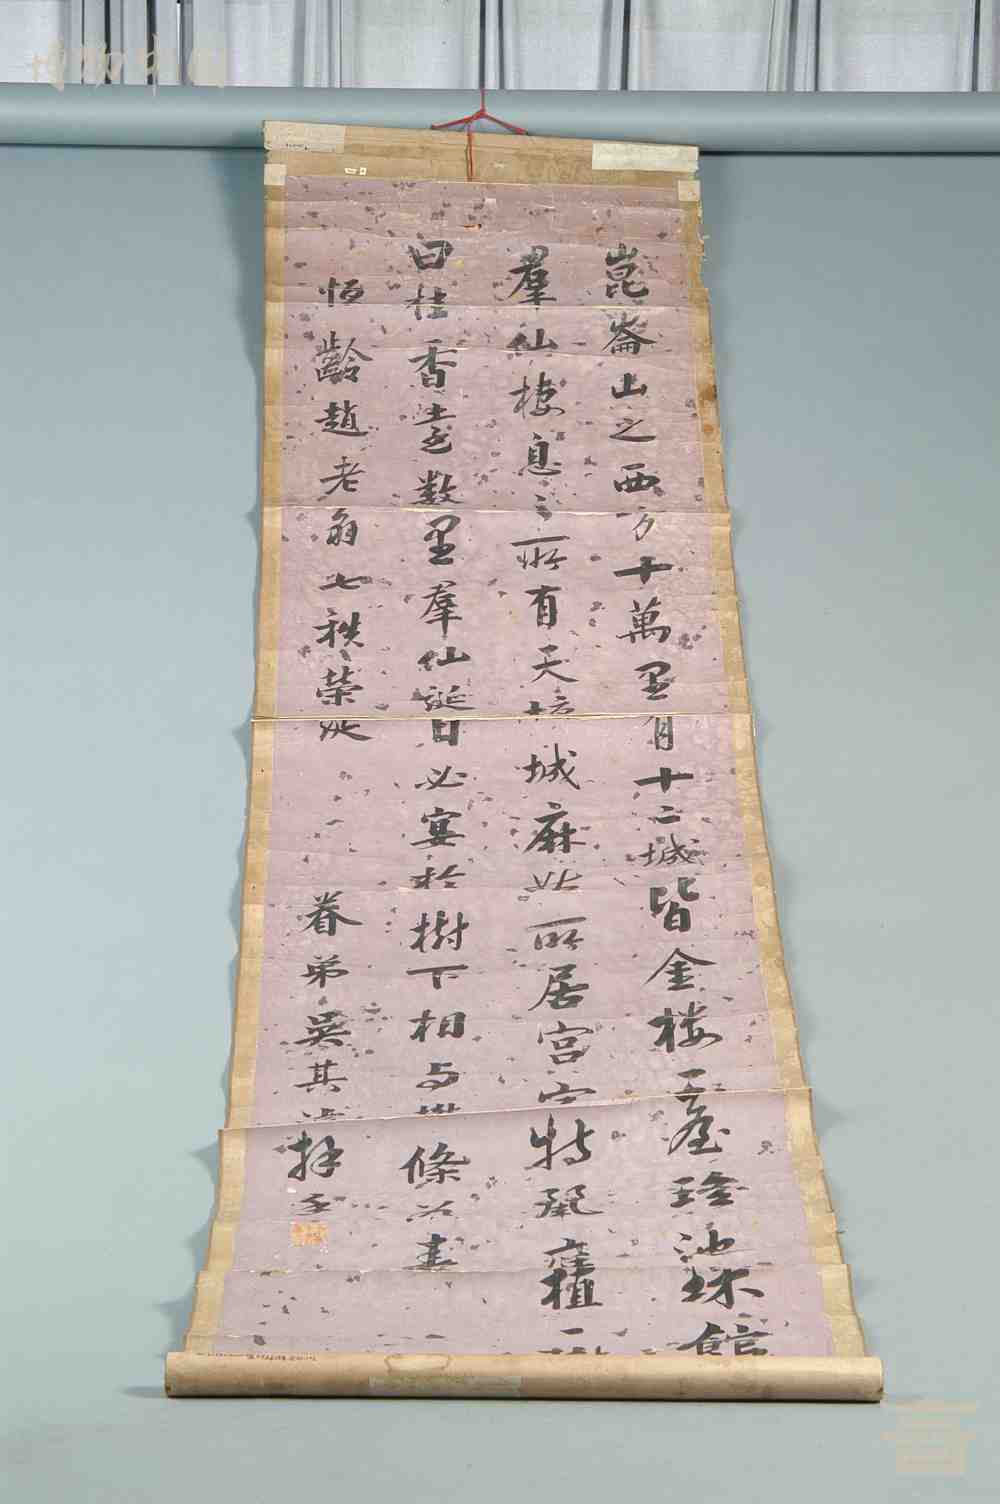 崑崙山之西方十萬里有十二城皆金樓玉臺珍池珠館
羣仙棲息之所有天墉城麻姑所居宮室特麗庭植一樹
曰桂香臺數里羣仙誕日必宴於樹下相与攀條為壽
恒齡趙老翁七秩榮誕
眷弟吳其濬拜手